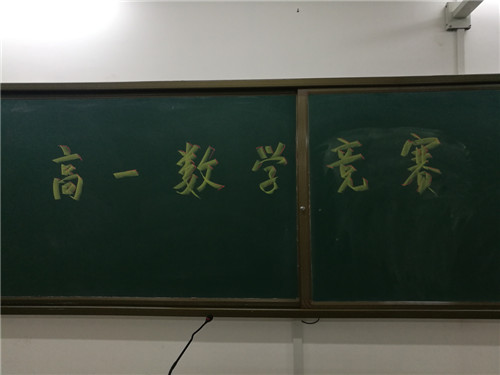 高一数学竞赛